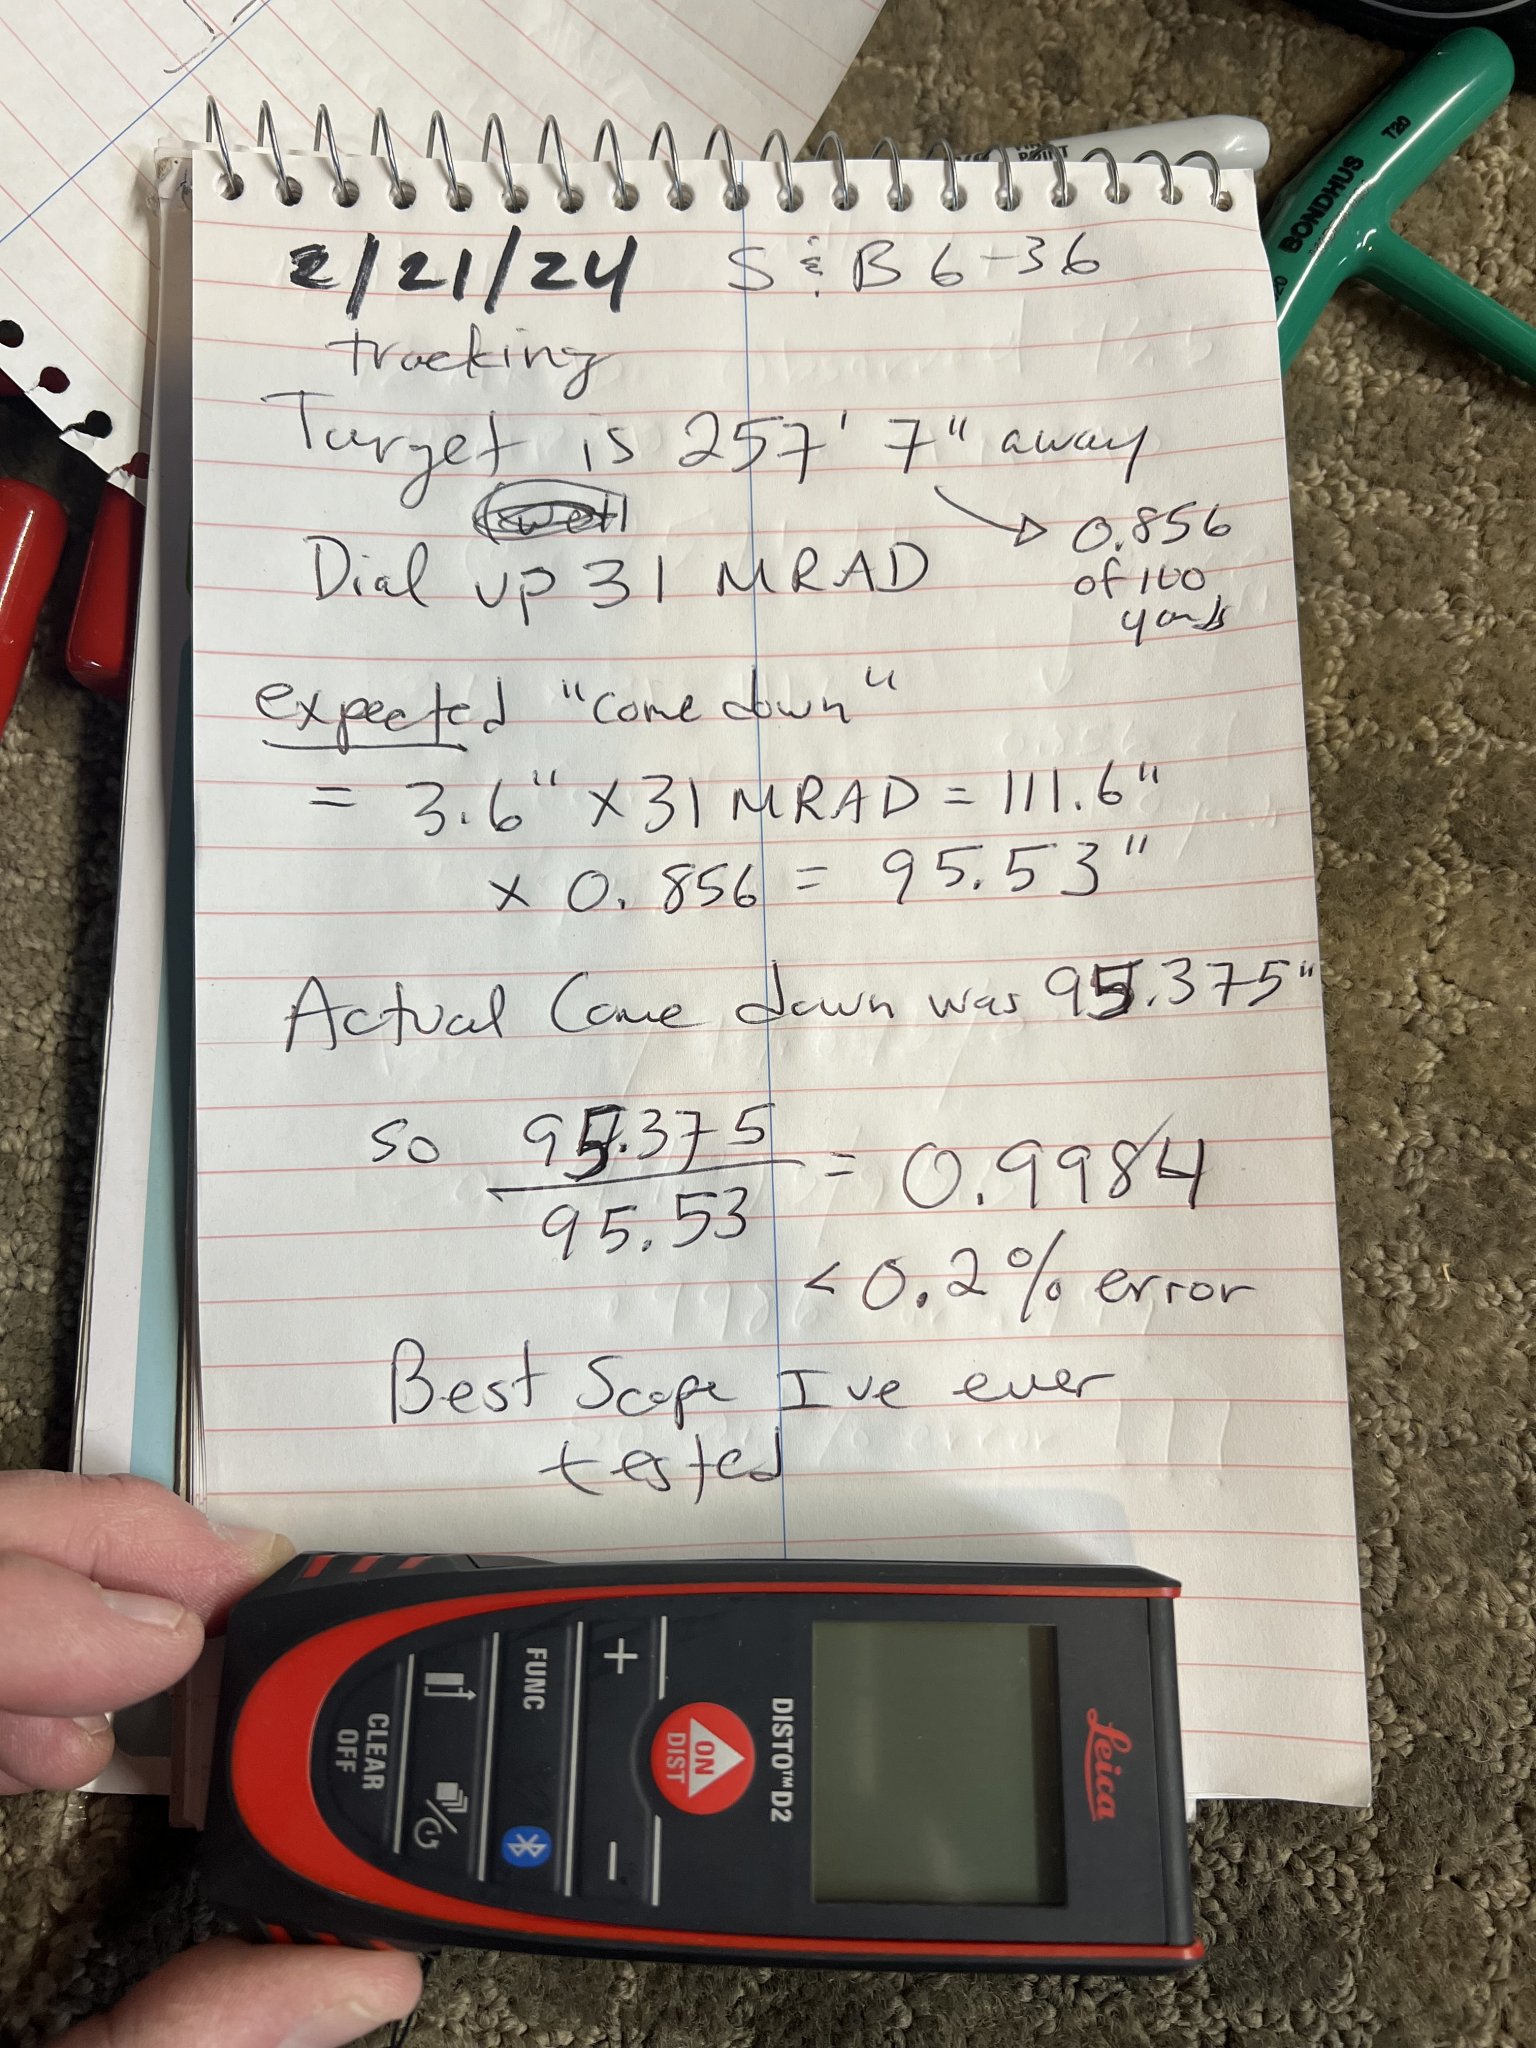 2/21/24 S & B 6-36
tracking
Target is 257' 7" away
0.856
of 100
yards
Dial up 31 MRAD
expected "come down"
= 3.6" x 31 MRAD = 111.6"
x 0.856 = 95.53"
Actual Come down was 95.375"
so 95.375
95.53
= 0.9984
< 0.2% error
Best Scope I've ever
tested
Leica
DISTO™ D2
ON
DIST
+
-
FUNC
CLEAR
OFF
BONDHUS
T20
POINT